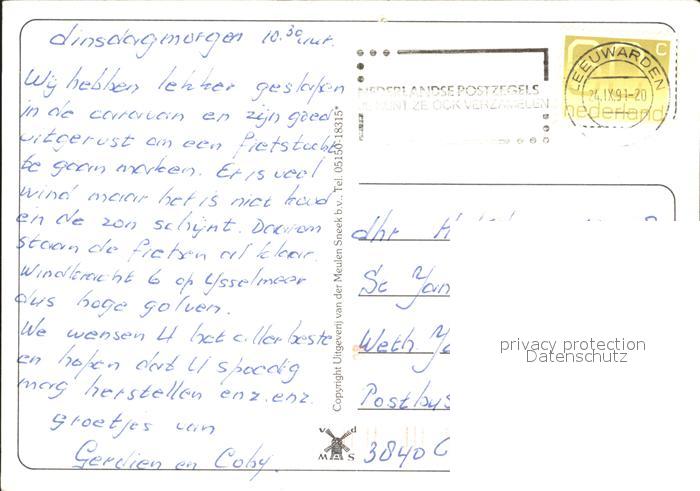 dinsdagmorgen 10.30 uur.
Wij hebben lekker geslapen
in de caravan en zijn goed
uitgerust om een fietstocht
te gaan maken. Er is veel
wind maar het is niet koud
en de zon schijnt. Daarom
staan de fietsen al klaar.
Windkracht 6 op IJsselmeer
dus hoge golven.
We wensen U het allerbeste
en hopen dat U spoedig
mag herstellen enz. enz.
groetjes van
Gerdien en Coby.
Copyright Uitgeverij van der Meulen Sneek b.v., Tel. 05150-18315*
v d
MAS
NEDERLANDSE POSTZEGELS
JE KUNT ZE OOK VERZAMELEN
LEEUWARDEN
24.IX.91-20
C
nederland
dhr H
St Jan
Weth. Ja
Postbus
3840 G
privacy protection
Datenschutz